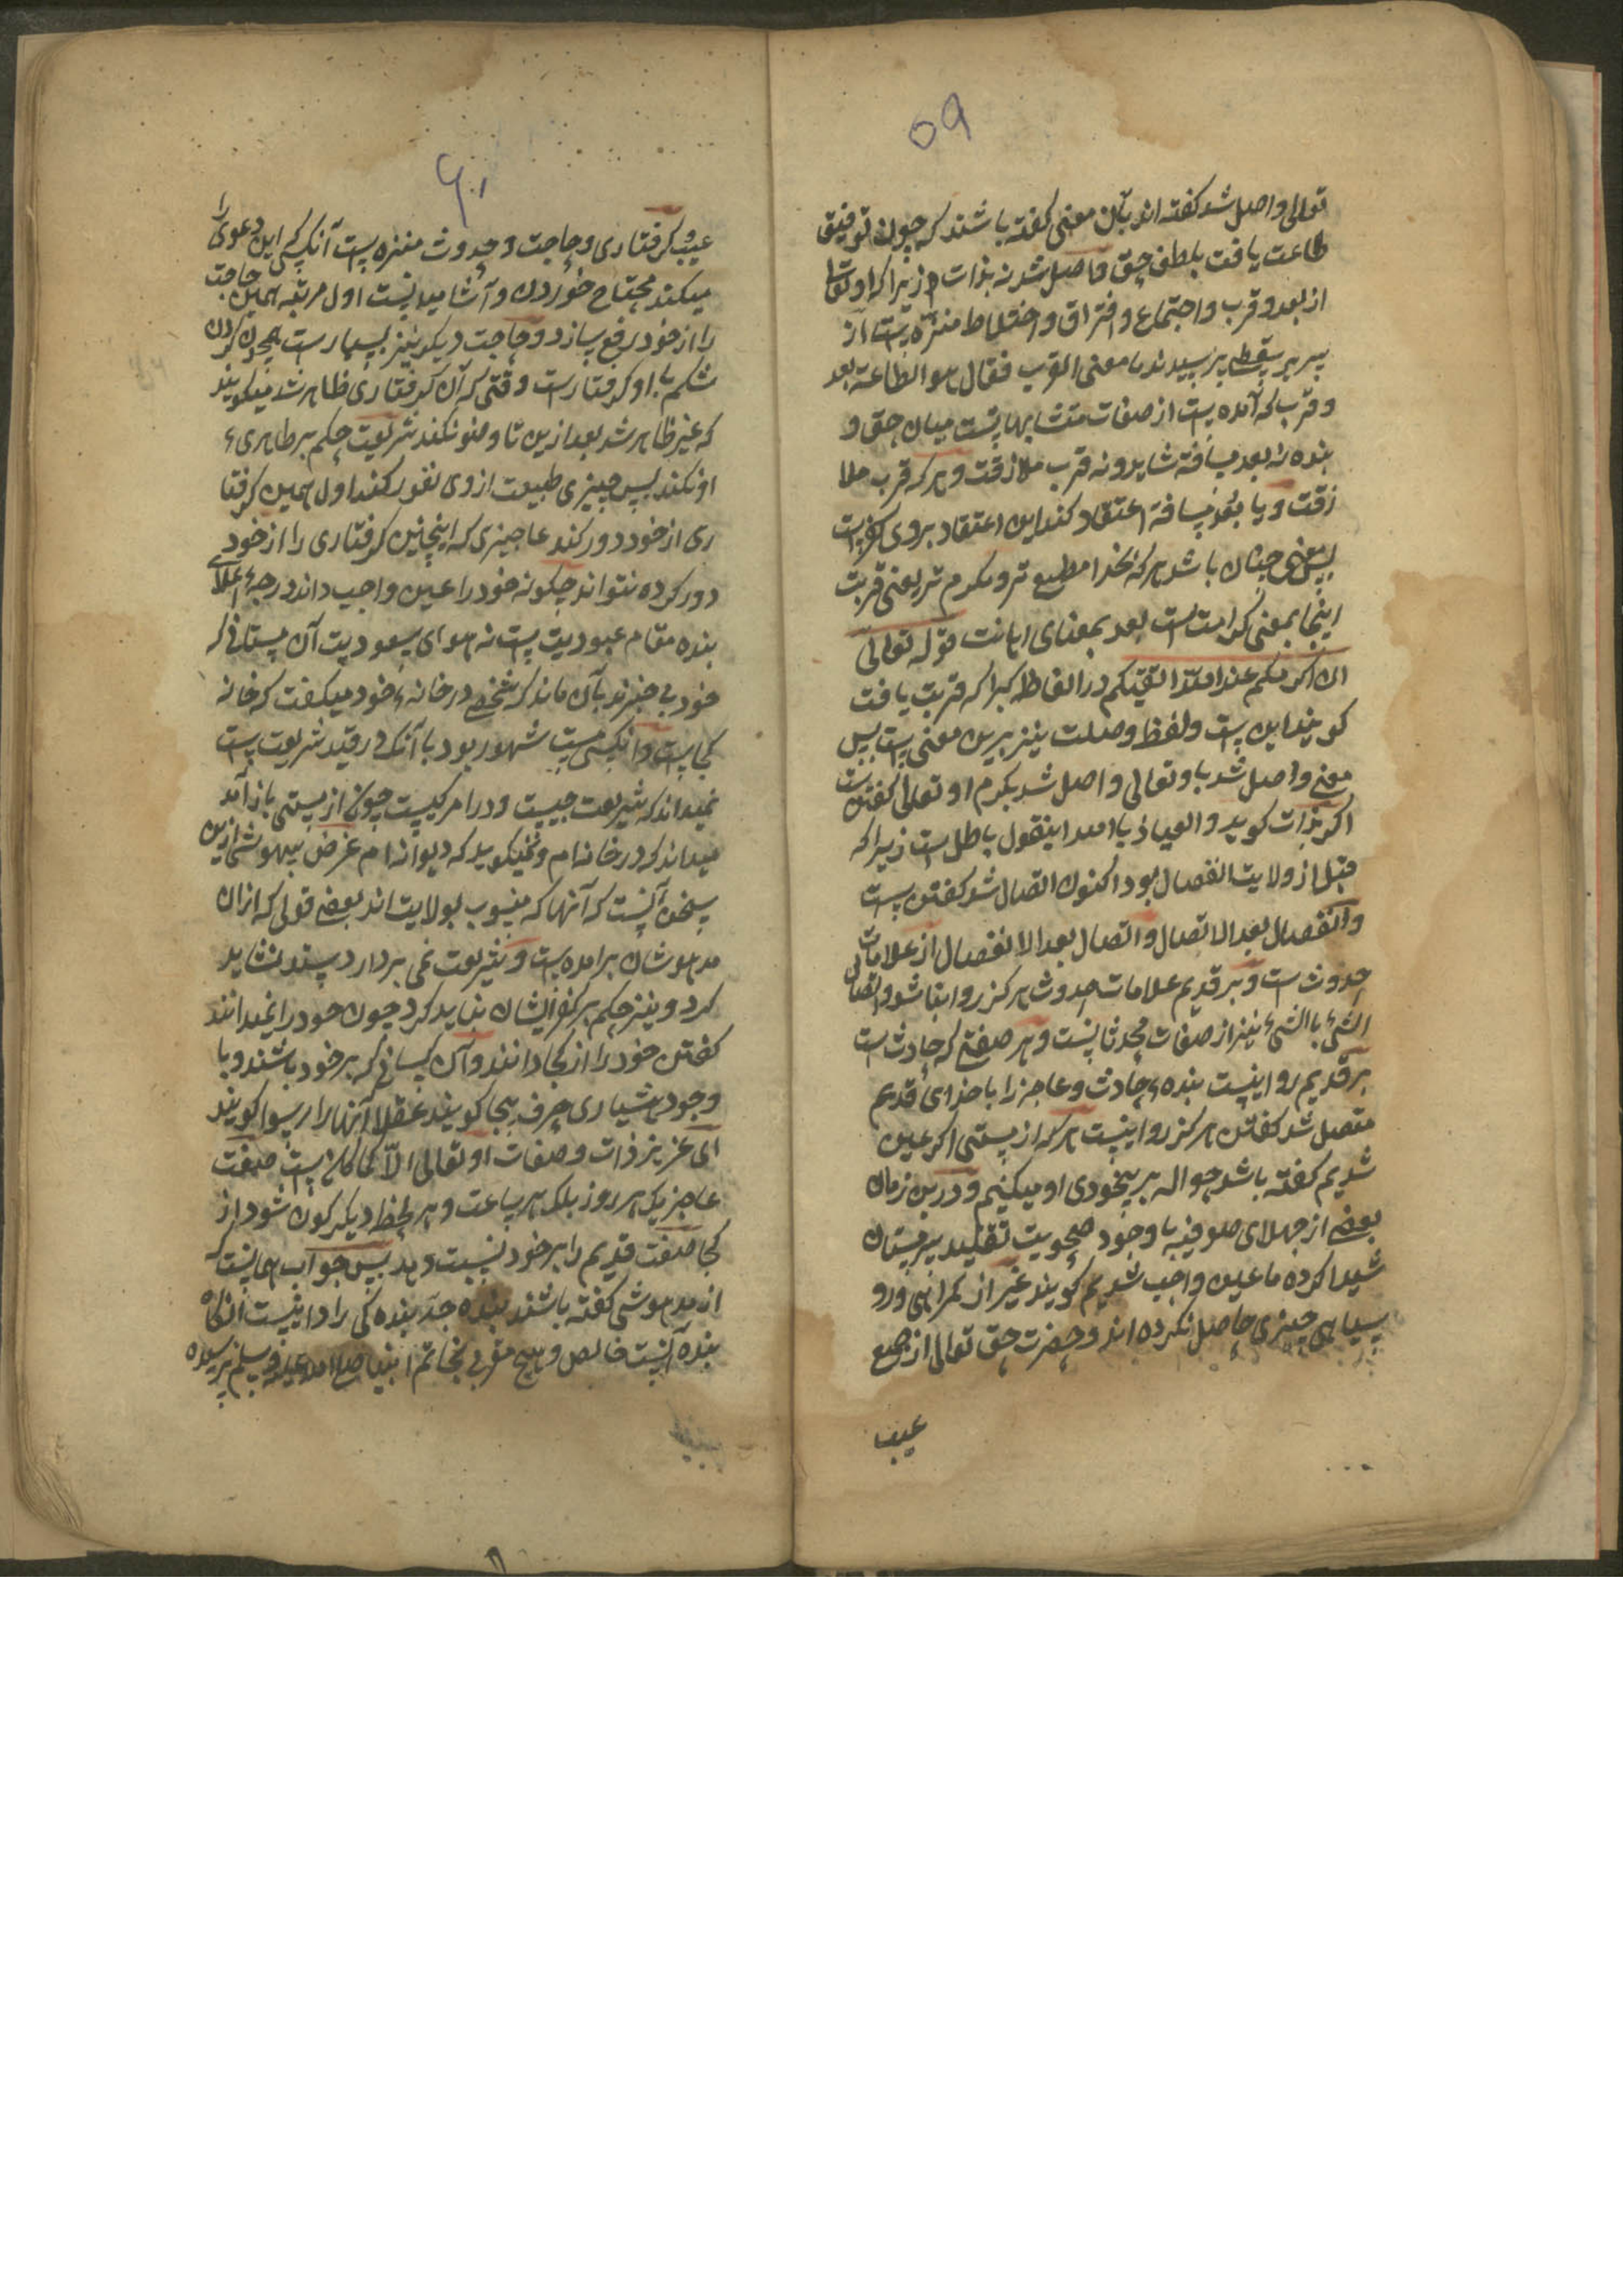 ۵۹
تعالی واصل شد گفته اند بآن معنی گفته باشند که چون توفیق
طاعت یافت بلطف حق واصل شد نه بذات زیرا که او تعالی
از بعد و قرب و اجتماع و افتراق و اختلاط منزه است از
پرسیدند ما معنی القرب فقال هو الطاعة بعد
و قرب که آمده است از صفات متشابهات میان حق و
بنده نه بعد مسافة شاید و نه قرب ملازقت و هر که قرب ملا
زقت و یا بعد مسافة اعتقاد کند این اعتقاد بر وی کفر است
پس معنی چنان باشد هر که بخدا مطیع تر و مکرم تر یعنی قربت
اینجا بمعنی کرامت است بعد بمعنای اهانت قوله تعالی
ان اکرمکم عند الله اتقیکم در الفاظ که قربت یافت
گویند این است و لفظ وصلت نیز برین معنی است پس
معنی واصل شد باو تعالی واصل شد بکرم او تعالی گفتن است
اگر بذات گوید والعیاذ بالله اینقول باطل است زیرا که
قبل از ولایت انفصال بود اکنون اتصال شد گفتن است
و انفصال بعد الاتصال و اتصال بعد الانفصال از علامات
حدوث است و بر قدیم علامات حدوث هرگز روا نباشد و اتصال
الشئ باالشئ نیز از صفات محدثانست و هر صفتی که حادث است
بر قدیم روا نیست بنده حادث و عاجز را با خدای قدیم
متصل شد گفتن هرگز روا نیست هر که از مستی اگر عین
شدیم گفته باشد حواله بر بیخودی او میکنیم و درین زمان
بعضی از جهلای صوفیه با وجود صحویت تقلید سرمستان
شیدا کرده ما عین واجب شدیم گویند غیر از گمراهی و رو
سیاهی چیزی حاصل نکرده اند و حضرت حق تعالی از جمیع
عیب
۶۰
عیب و گرفتاری و حاجت و حدوث منزه است آنکسی که این دعوی را
میکند محتاج خوردن و آشامیدنست اول مرتبه همین حاجت
را از خود رفع سازد و حاجت دیگر نیز بسیار است
شکم با او گرفتار است وقتی که آن گرفتاری ظاهر شد میگویند
که غیر ظاهر شد بعد ازین تا وضو نکند شریعت حکم بر طاهری
او نکند پس چیزی طبیعت از وی نفور کند اول همین گرفتا
ری از خود دور کند عاجزی که اینچنین گرفتاری را از خود
دور کرده نتواند چگونه خود را عین واجب داند درجهٔ اعلای
بنده مقام عبودیت است نه هوای آن مستانی که
خود بی خبرند بآن ماند که شخصی در خانهٔ خود میگفت که خانه
کجاست شهور بود با آنکه در قید شریعت است
نمیداند که شریعت چیست و در امر کیست چون از مستی باز آمد
میداند که در خانه ام و نمیگوید که دیوانه ام غرض ازین
سخن آنست که آنها که منسوب بولایت اند بعضی قولی که ازان
مدهوشان بر آمده است و شریعت نمی بردارد سند نشاید
کرد و نیز حکم بر کفر ایشان نباید کرد چون خود را نمیدانند
گفتن خود را از کجا دانند و آن کسانی که بر خود باشند و با
وجود هشیاری حرف بیجا گویند عقلا آنها را رسوا گویند
ای عزیز ذات و صفات او تعالی الآن کما کان است صفت
عاجز یک هر روز بلکه هر ساعت و هر لحظه دیگر گون شود از
کجا صفت قدیم را بر خود نسبت دهد پس جواب همین است که
از مدهوشی گفته باشند بنده بنده گی را دانیست آنگاه
بنده آنست خالص و هیچ مقربی بخاتم انبیا صلی الله علیه وسلم نرسیده